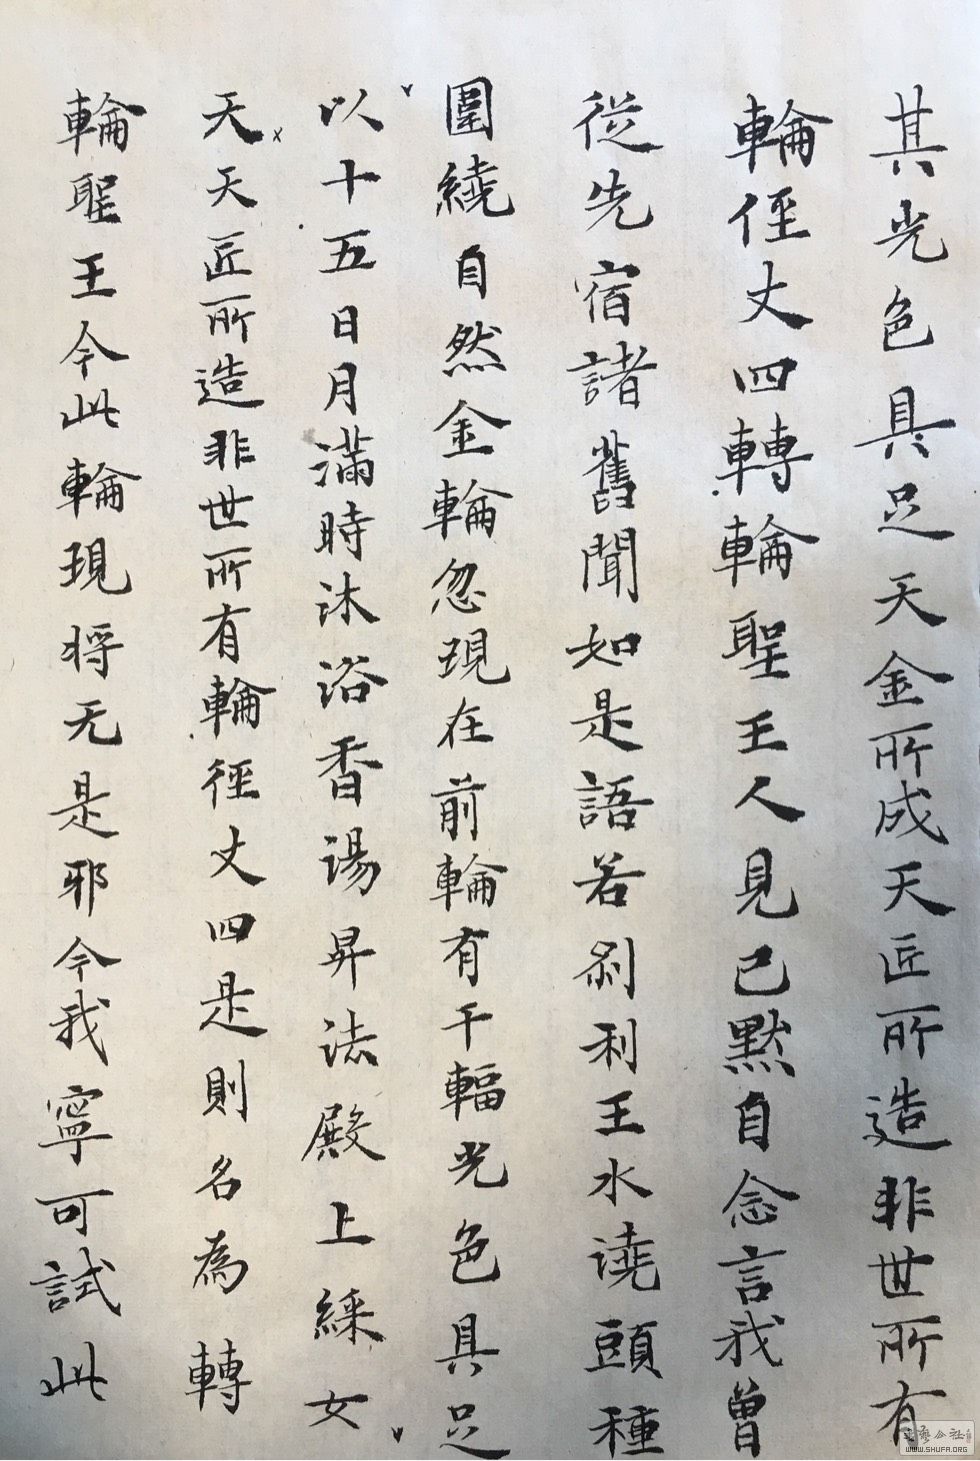 其光色具足天金所成天匠所造非世所有
輪侄丈四轉輪聖王人見已默自念言我曾
從先宿諸舊聞如是語若剎利王水澆頭種
以十五日月滿時沐浴香湯昇法殿上綵女
圍繞自然金輪忽現在前輪有千輻光色具足
天天匠所造非世所有輪徑丈四是則名為轉
輪聖王今此輪現将无是邪今我寧可試此
WWW.SHUFA.ORG